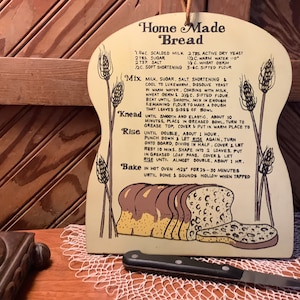 Home Made
Bread
1¾ C. SCALDED MILK 2 TBS. ACTIVE DRY YEAST
2 TBS. SUGAR ½ C. WARM WATER 110°
2 TSP. SALT ½ C. WHEAT GERM
¼ C. SOFT SHORTENING 7 C. SIFTED FLOUR
Mix MILK, SUGAR, SALT, SHORTENING &
COOL TO LUKEWARM. DISSOLVE YEAST
IN WARM WATER. COMBINE WITH MILK,
WHEAT GERM & 3½ C. SIFTED FLOUR.
BEAT UNTIL SMOOTH. MIX IN ENOUGH
REMAINING FLOUR TO MAKE A DOUGH
THAT LEAVES SIDES OF BOWL.
Knead UNTIL SMOOTH AND ELASTIC, ABOUT 10
MINUTES. PLACE IN GREASED BOWL, TURN TO
GREASE TOP, COVER & PUT IN WARM PLACE TO
Rise UNTIL DOUBLE, ABOUT 1 HOUR.
PUNCH DOWN & LET RISE AGAIN. TURN
ONTO BOARD, DIVIDE IN HALF, COVER & LET
REST 10 MINS. SHAPE INTO 2 LOAVES. PUT
IN GREASED LOAF PANS, COVER & LET
RISE UNTIL ALMOST DOUBLE, ABOUT 1 HR.
Bake IN HOT OVEN 425° FOR 25-30 MINUTES
UNTIL DONE & SOUNDS HOLLOW WHEN TAPPED